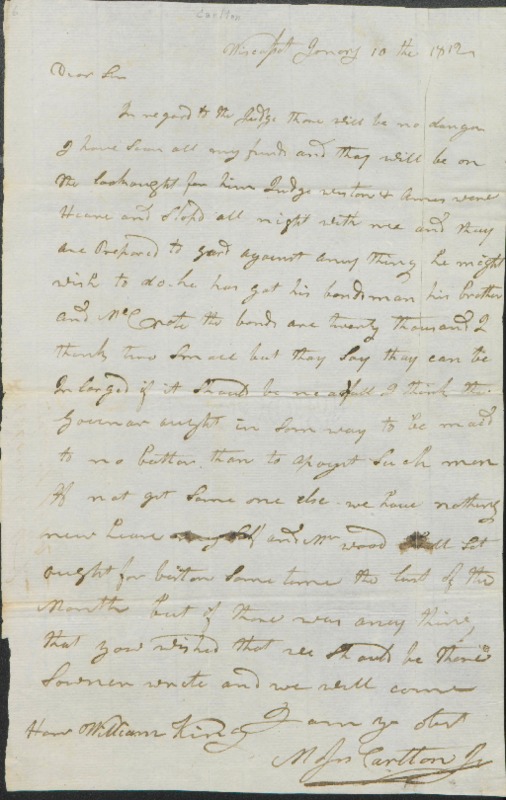 Carlton
Wiscaset Jenory 10 the 1812
Dear Sir
In regard to the Judge thare will be no danger
I have Seen all my frinds and thay will be on
the lookought for him Judge weston & Ames ware
Heare and Slept all night with mee and thay
are Prepared to gard against anny thing he might
wish to do. he has got his bondsman his brother
and McCrate the bonds are twenty thousand I
think two Small but thay Say thay can be
Inlarged if it Should be neadfull I think the
Govenor ought in Som way to be maid
to no better than to apoynt Such men
If not get Some one else. we have nothing
new heare my Self and Mr wood Will Set
ought for boston Some time the last of the
Month but if thare was anny thing
that you wished that we Should be there
Sooner write and we will come
I am yr obt
Honr William King
Moses Carlton Jr